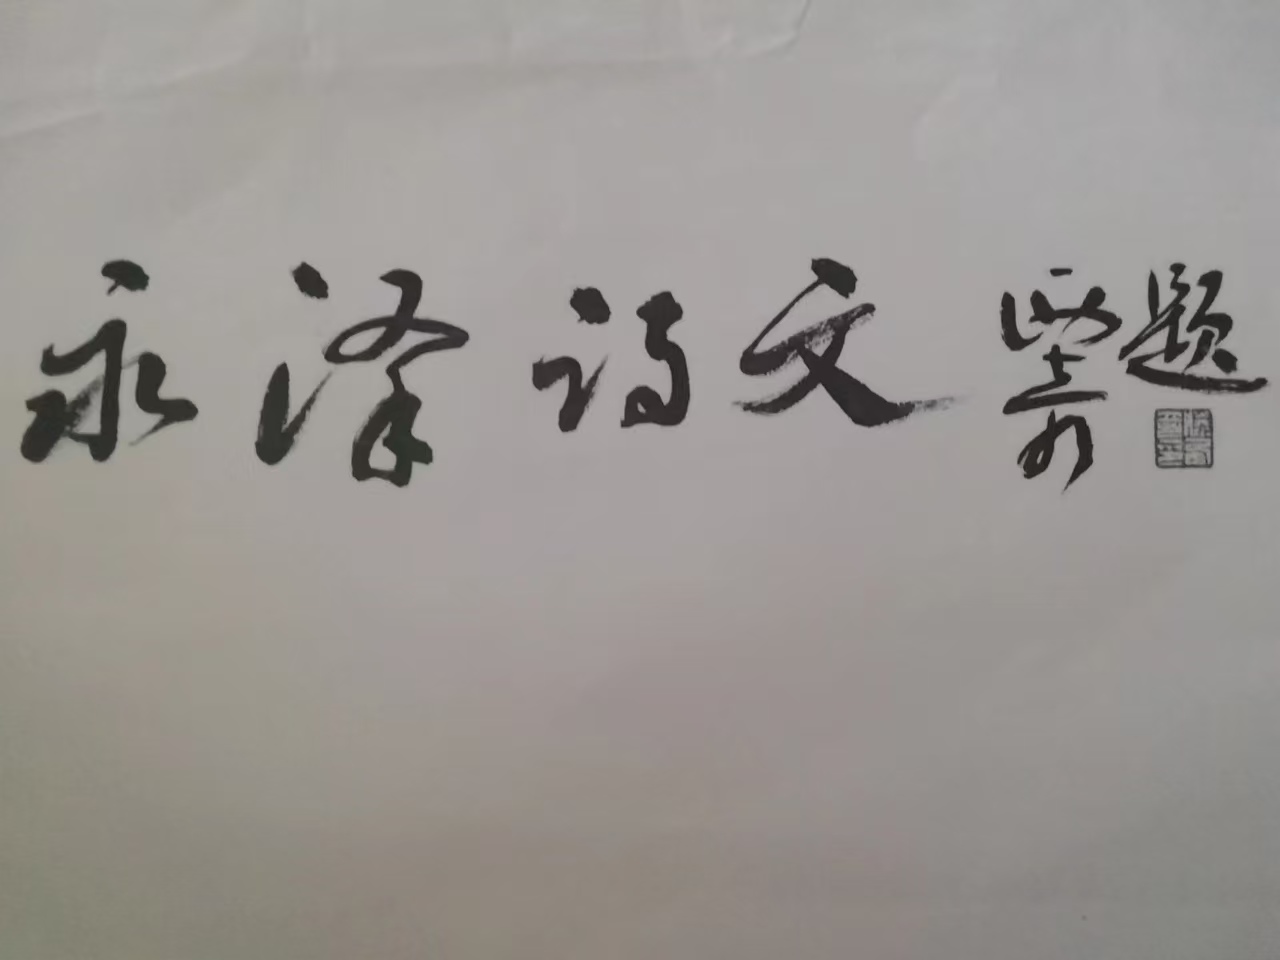 永泽诗文
题